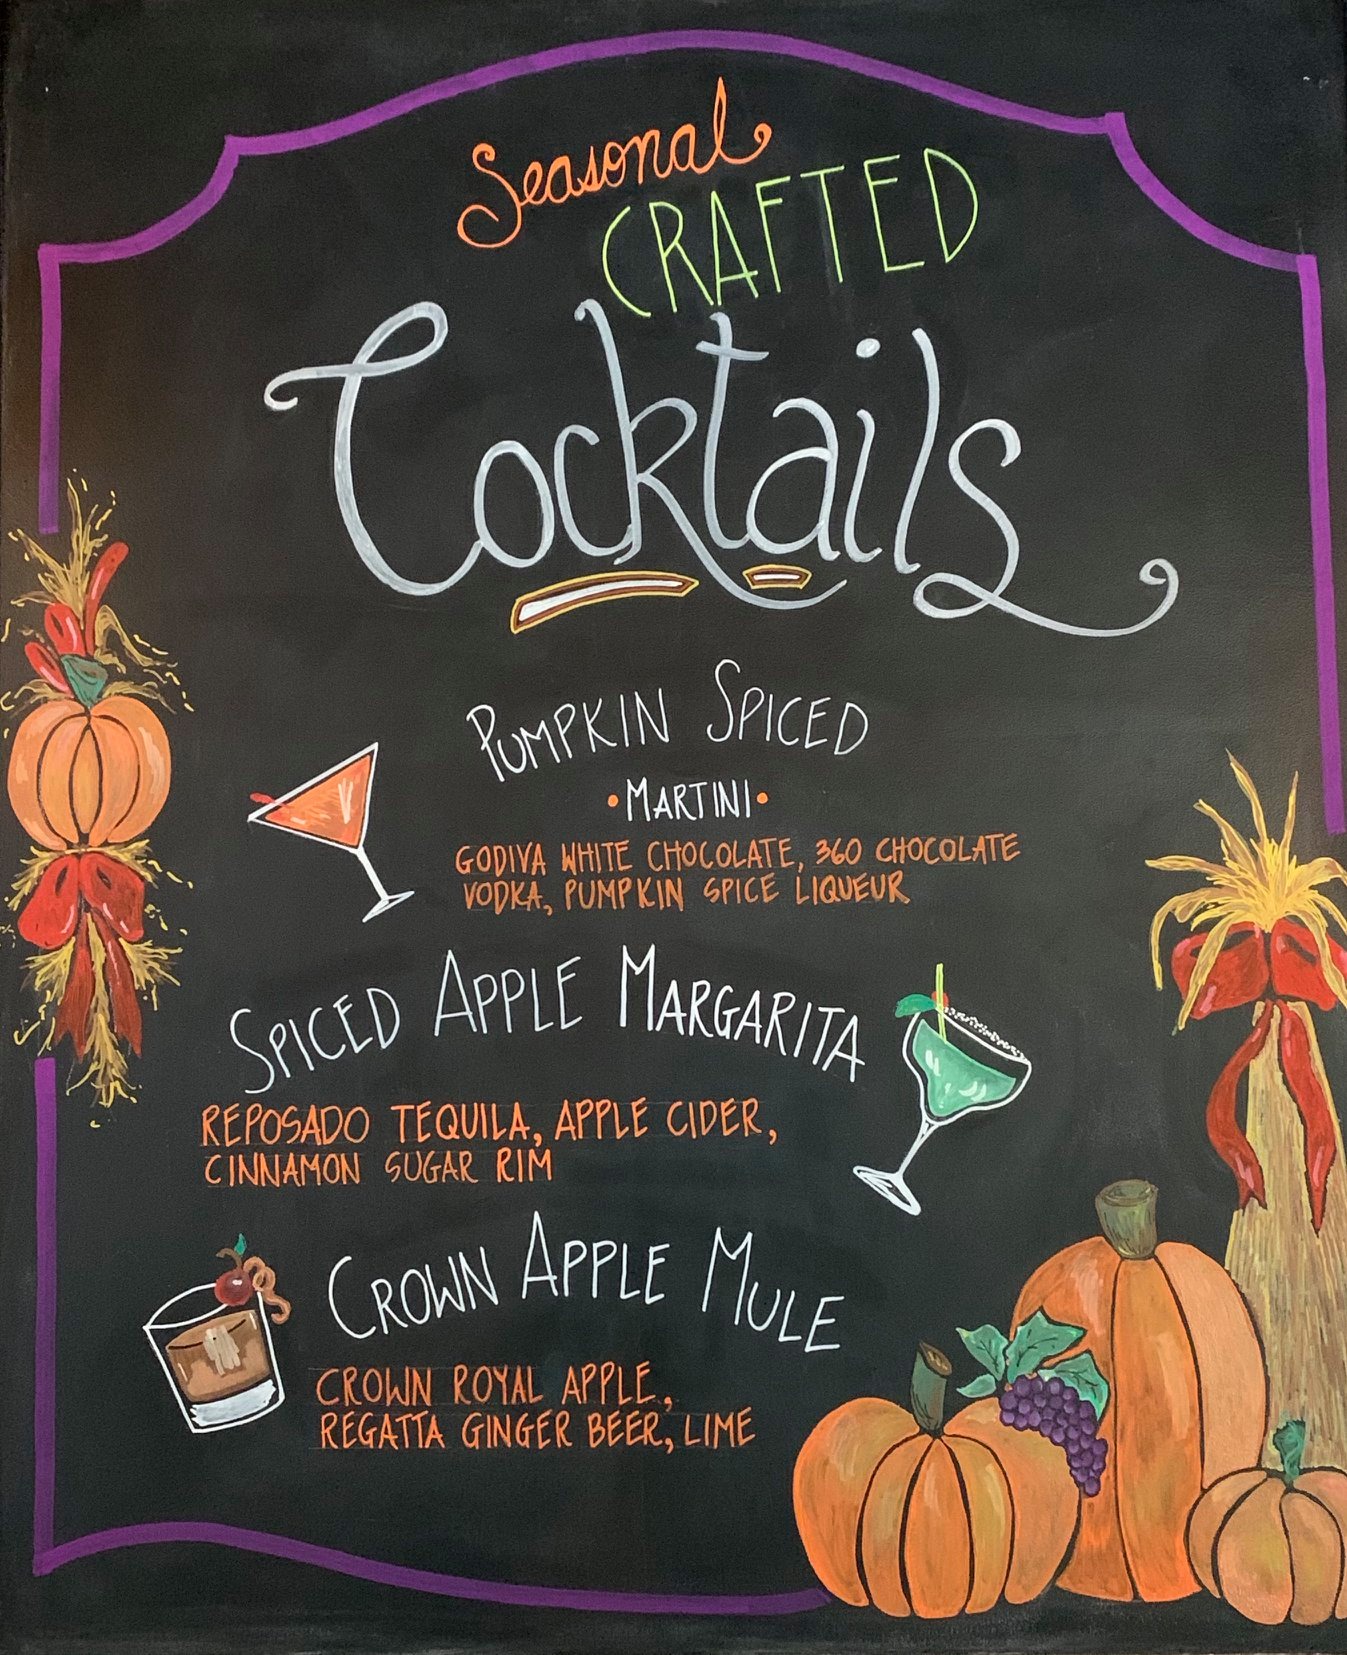 Seasonal
CRAFTED
Cocktails
PUMPKIN SPICED
•MARTINI•
GODIVA WHITE CHOCOLATE, 360 CHOCOLATE
VODKA, PUMPKIN SPICE LIQUEUR
SPICED APPLE MARGARITA
REPOSADO TEQUILA, APPLE CIDER,
CINNAMON SUGAR RIM
CROWN APPLE MULE
CROWN ROYAL APPLE,
REGATTA GINGER BEER, LIME